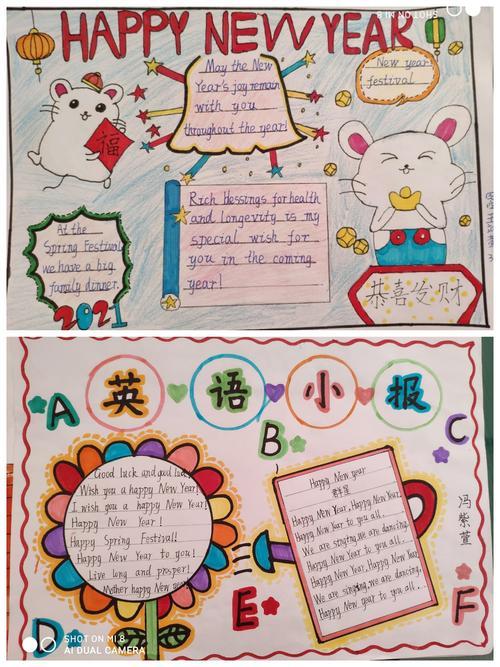 SHOT ON MI 8
HAPPY NEW YEAR
May the New
Year's joy remain
with you
throughout the year!
New year
festival
福
Rich blessings for health
and longevity is my
special wish for
you in the coming
year!
At the
Spring Festival
we have a big
family dinner.
2021
恭喜发财
英语小报
A
B
C
Good luck and good luck
Wish you a happy New Year!
I wish you a happy New Year!
Happy New Year!
Happy Spring Festival!
Happy New Year to you!
Live long and prosper!
Mother happy New year
Happy New year
Happy New Year, Happy New Year
Happy New Year to you all...
We are singing, we are dancing.
Happy New Year to you all...
Happy New Year, Happy New Year
We are singing, we are dancing,
Happy New year to you all...
冯紫萱
D
E
F
SHOT ON MI 8
AI DUAL CAMERA